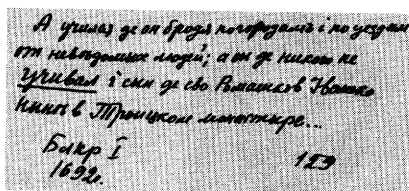 А училъ де он бродя по городамъ і по уездам
от неведомых людей; а он де никого не
учивал і сын де ево Ромашков Ивашко
ныне в Троицком монастыре...
Блкр I
1692г. 129